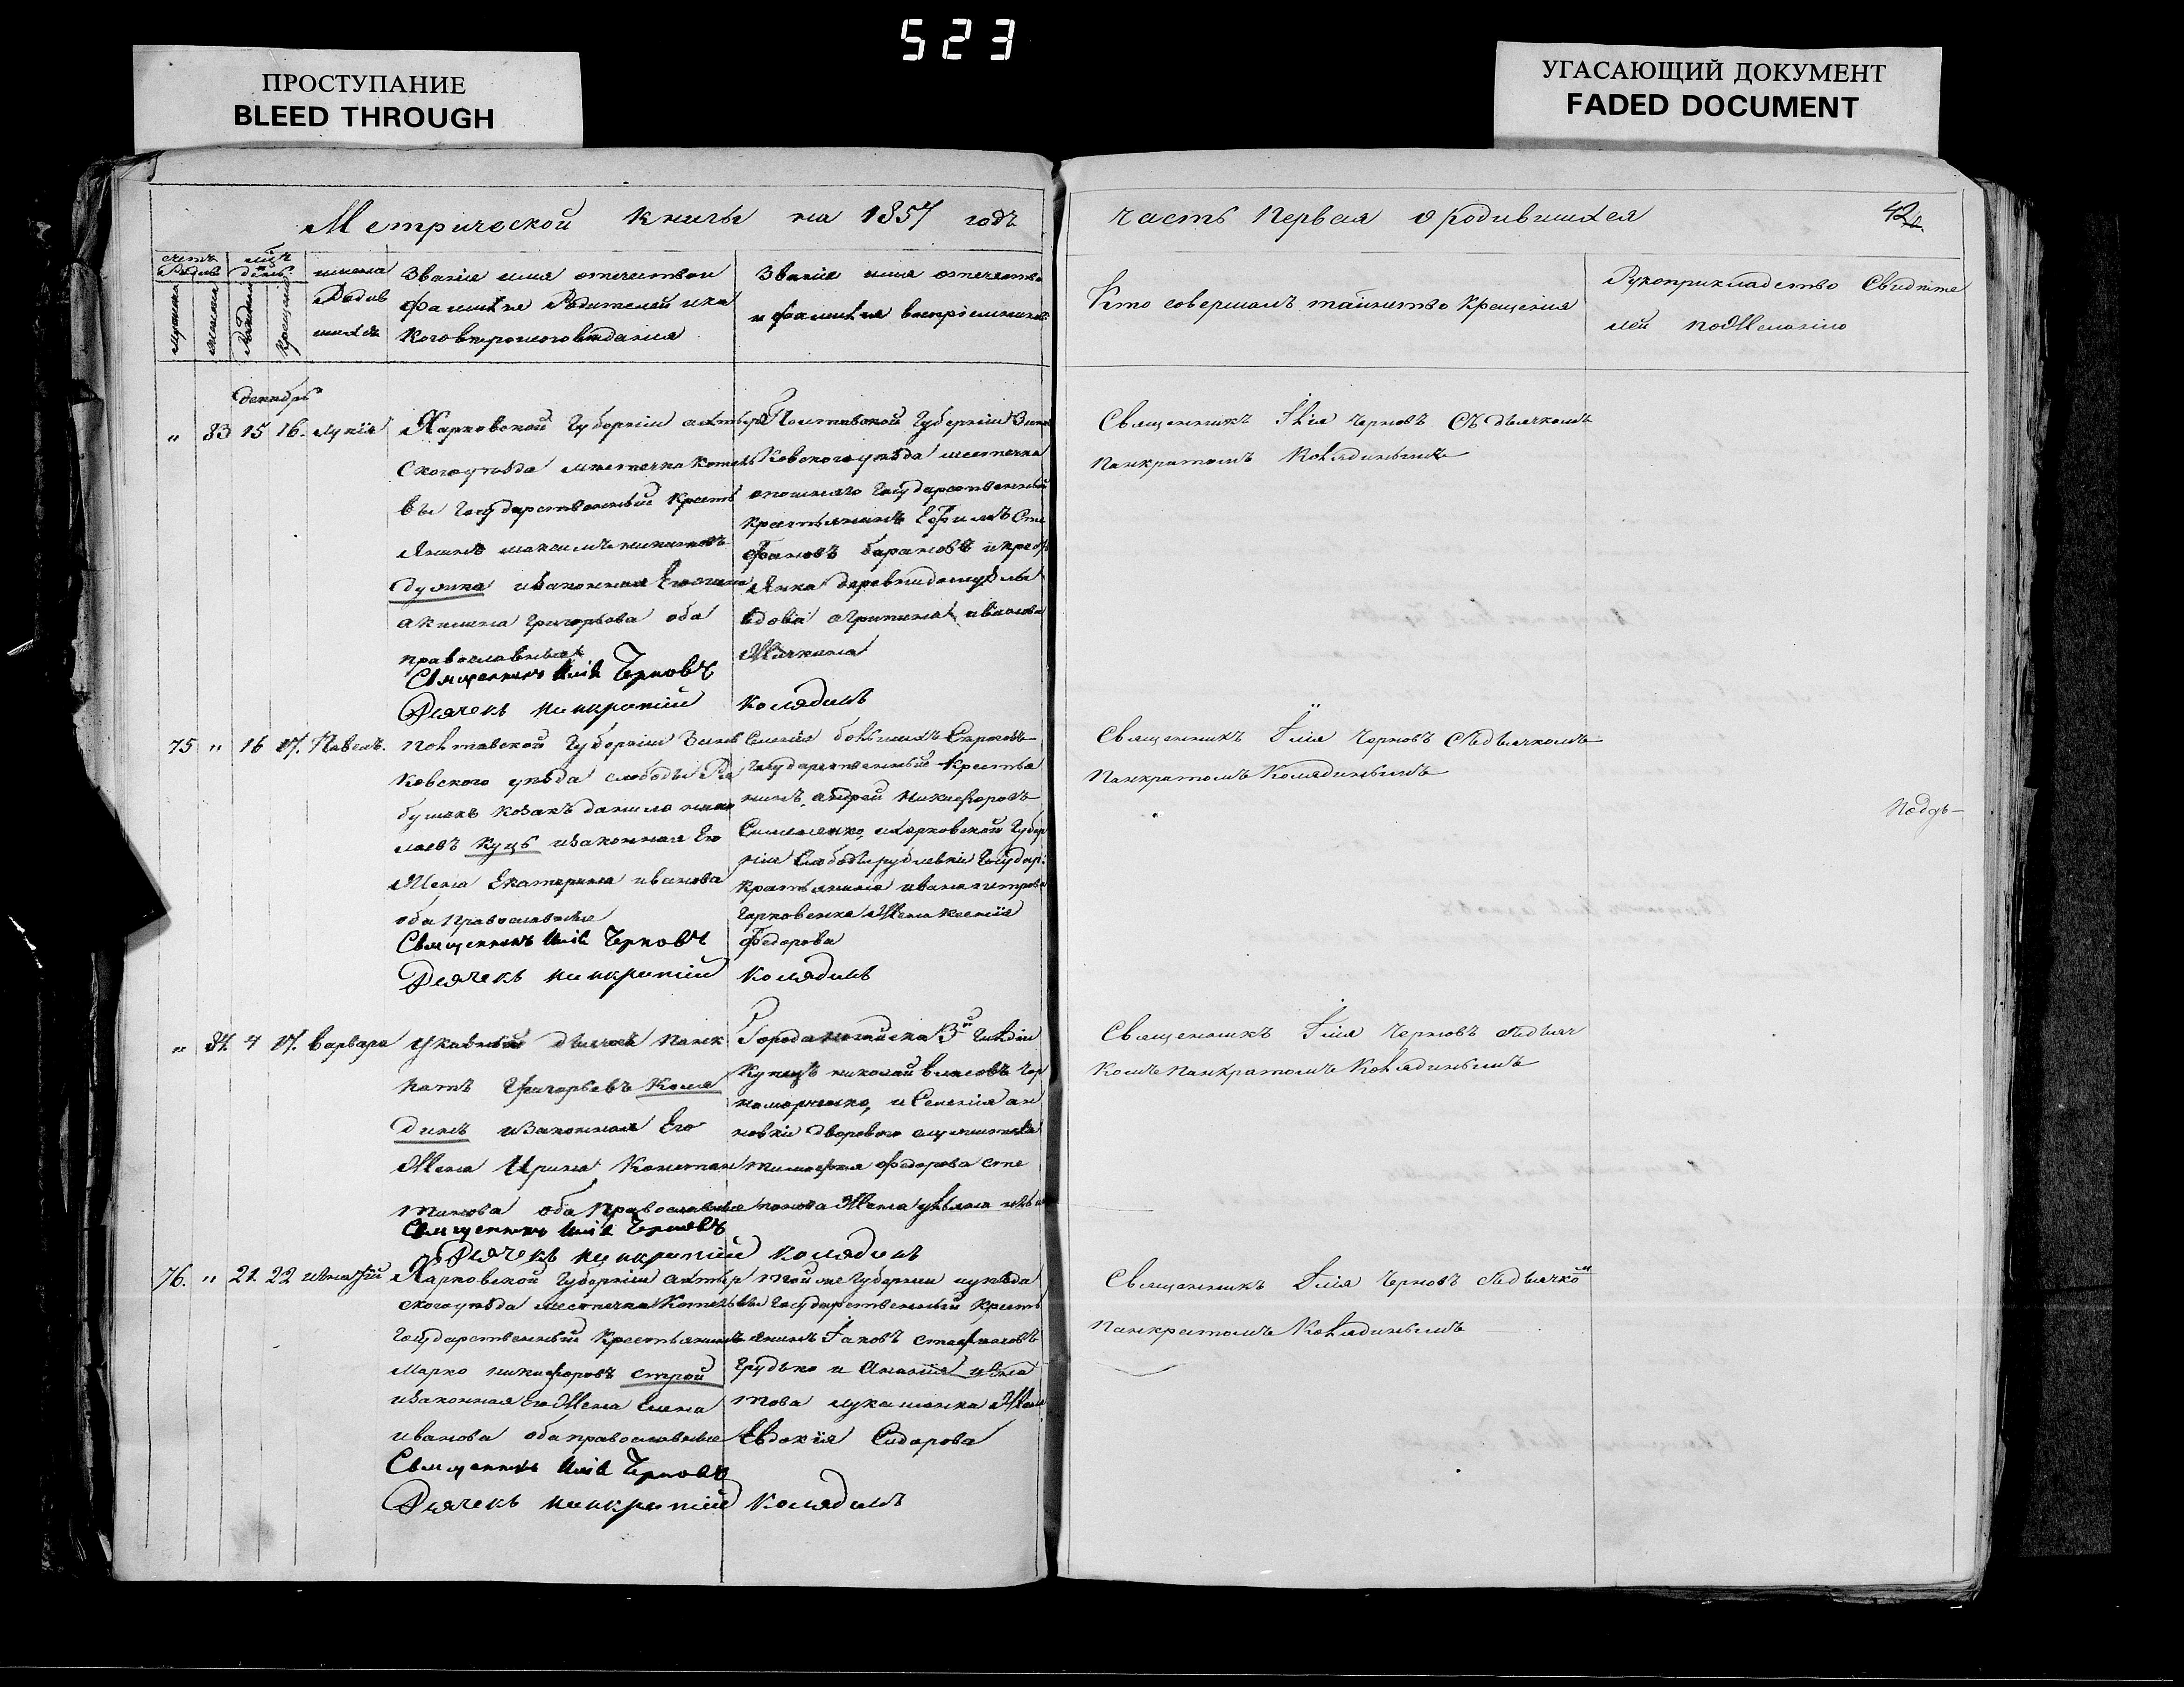 523
ПРОСТУПАНИЕ
BLEED THROUGH
УГАСАЮЩИЙ ДОКУМЕНТ
FADED DOCUMENT
Метрической книги на 1857 годъ
часть Первая о родившихся
42
имена
Родив
шихся
Званіе имя отчество и
Фамилія Родителей и ка
кого вероисповеданія
Званіе имя отчество
и фамилія воспріемников
Кто совершалъ таинство крещенія
Рукоприкладство Свидѣте
лей по желанію
декабрь
" 83 15 16. Лукія
Харковской Губерніи ахтыр
Скогоуѣзда местечка котель
вы Государственный Кресть
янинъ
Сдула изаконная Егожена
акилина григорьова оба
православныя
Священникъ Илія Черновъ
Дячекъ панкратій колядинъ
Полтавской Губерніи Зинь
Ковскогоуѣзда местечка
опошняго Государственный
крестьянинъ Ефимъ Сте
фановъ барановъ и крест
янка деревни
вдова агрипина иванова
Священникъ Илія Черновъ Съ дьячкомъ
Панкратомъ Колядинымъ
75 " 16 17. Павелъ.
Полтавской Губерніи Зинь
Ковского уѣзда слободы
козакъ данило нико
лаевъ Куцъ изаконная Его
Жена Екатерина иванова
оба Православные
Священникъ Илія Черновъ
Дячекъ панкратій колядинъ
Государственный Крестья
нинъ андрей Никифоровъ
Симоненко, и харковской Губер
ніи Слободы рублевки Государ:
крестьянина ивана петрова
Жена Ксенія
Федорова
Священникъ Илія Черновъ Съдьячкомъ
Панкратомъ Колядинымъ
Подъ—
" 84. 4 17. Варвара
Указный дьячокъ Панк
ратъ Григорьевъ Коля
динъ изаконная Его
Жена Ирина Констан
тинова оба Православные
Священникъ Илія Черновъ
Дячекъ панкратій колядинъ
Города 3й Гильдіи
Купецъ николай власовъ Чер
номорченко, и Селенія ан
новки дворового
тимофея федорова сте
панова Жена
Священникъ Илія Черновъ Съдьяч
комъ Панкратомъ Колядинымъ
76. " 21. 22 игнатій
Харковской Губерніи ахтыр
скогоуѣзда местечка Котельвы
Государственный Крестьянинъ
Марко никифоровъ Строй
изаконная Его Жена Елена
иванова оба православные
Священникъ Илія Черновъ
Дячекъ панкратій колядинъ
той же Губерніи иуѣзда
Государственный Кресть
янинъ Іаковъ Стефановъ
Грудько и
това лукашенка Жена
Евдокія Сидорова
Священникъ Илія Черновъ Съдьячком
Панкратомъ Колядинымъ